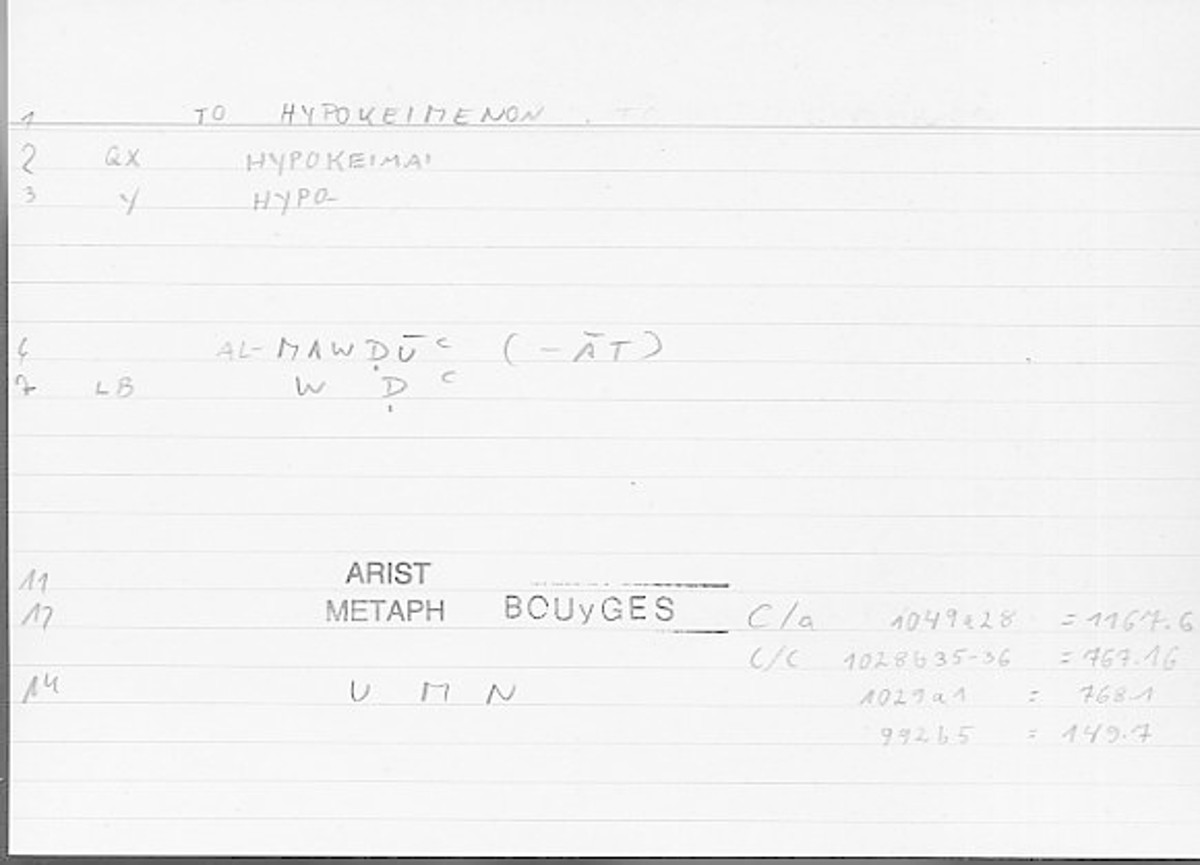 1 TO HYPOKEIMENON.
2 QX HYPOKEIMAI
3 Y HYPO-
6 AL-MAWḌŪʿ (-ĀT)
7 LB W Ḍ ʿ
11 ARIST
12 METAPH BOUyGES C/a 1049a28 = 1167.6
C/C 1028b35-36 = 767.16
14 U M N 1029a1 = 768.1
992b5 = 149.7